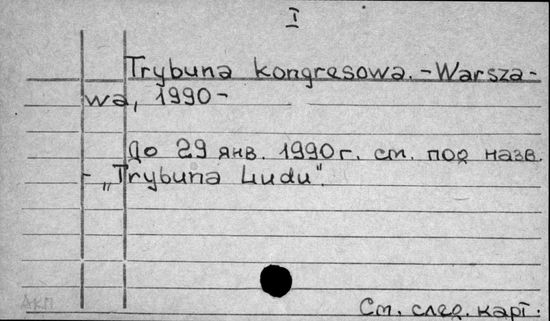 I
Trybuna kongresowa. - Warsza-
wa, 1990 -
До 29 янв. 1990 г. см. под назв.
- „Trybuna Ludu".
АКП
См. след. карт.